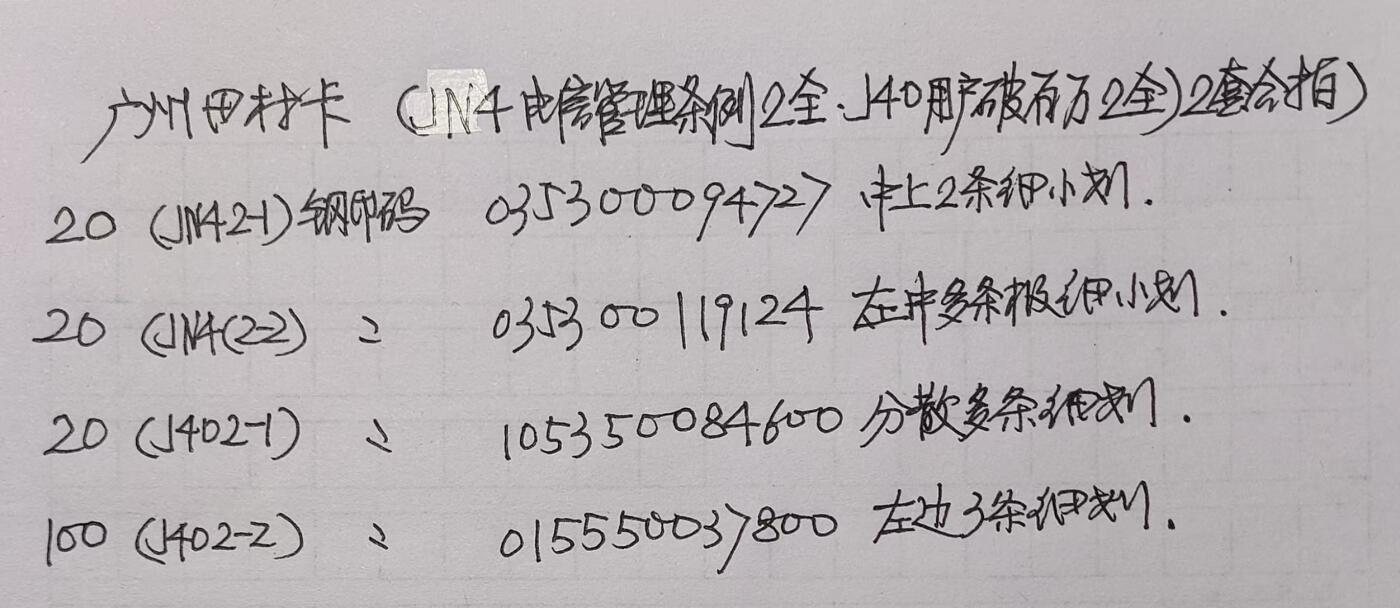 广州田村卡 (JN4电信管理条例2全.J40用户破百万2全)2套合拍)
20 (JN42-1)钢印码 035300094727 中上2条细小划.
20 (JN4(2-2) 〃 035300119124 左中多条极细小划.
20 (J402-1) 〃 105350084600 分散多条细划.
100 (J402-2) 〃 015550037800 左边3条细划.